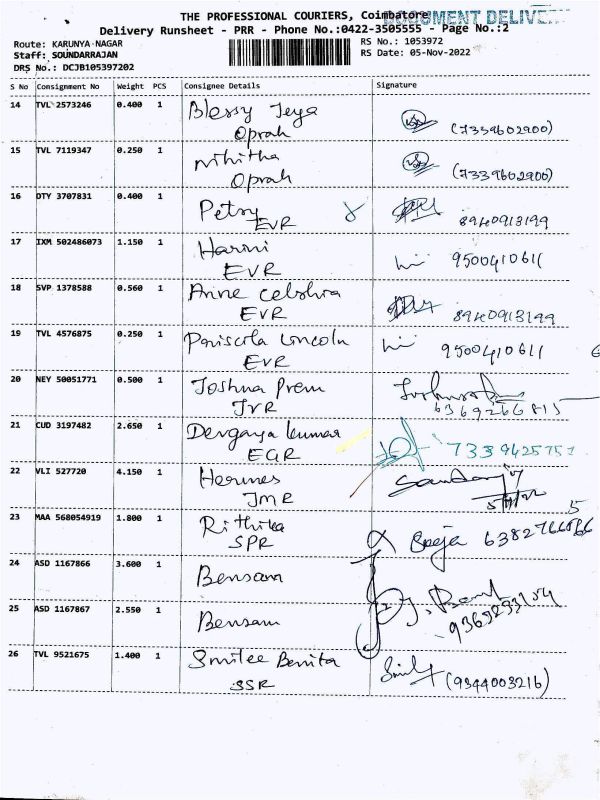 THE PROFESSIONAL COURIERS, Coimbatore
DOCUMENT DELIVE
Delivery Runsheet - PRR - Phone No.:0422-3505555 - Page No.:2
Route: KARUNYA NAGAR
RS No.: 1053972
Staff: SOUNDARRAJAN
RS Date: 05-Nov-2022
DRS No.: DCJB105397202
S No Consignment No Weight PCS Consignee Details Signature
14 TVL 2573246 0.400 1 Blessy Jeya
Oprah (7339602900)
15 TVL 7119347 0.250 1 Nihitha
Oprah (7339602900)
16 DTY 3707831 0.400 1 Petsy
EVR 8940913199
17 IXM 502486073 1.150 1 Harini 9500410611
EVR
18 SVP 1378588 0.560 1 Anne
EVR 8940913199
19 TVL 4576875 0.250 1 Lincoln 9500410611
EVR
20 NEY 50051771 0.500 1 Joshua Prem
JVR 6369266815
21 CUD 3197482 2.650 1 kumar 7339425757
EGR
22 VLI 527720 4.150 1 Hermes
JMR
23 MAA 568054919 1.800 1 Rithika
SPR
24 ASD 1167866 3.600 1 Bensam
25 ASD 1167867 2.550 1 Bensam
26 TVL 9521675 1.400 1 Smilee Benita
SSR (9344003216)